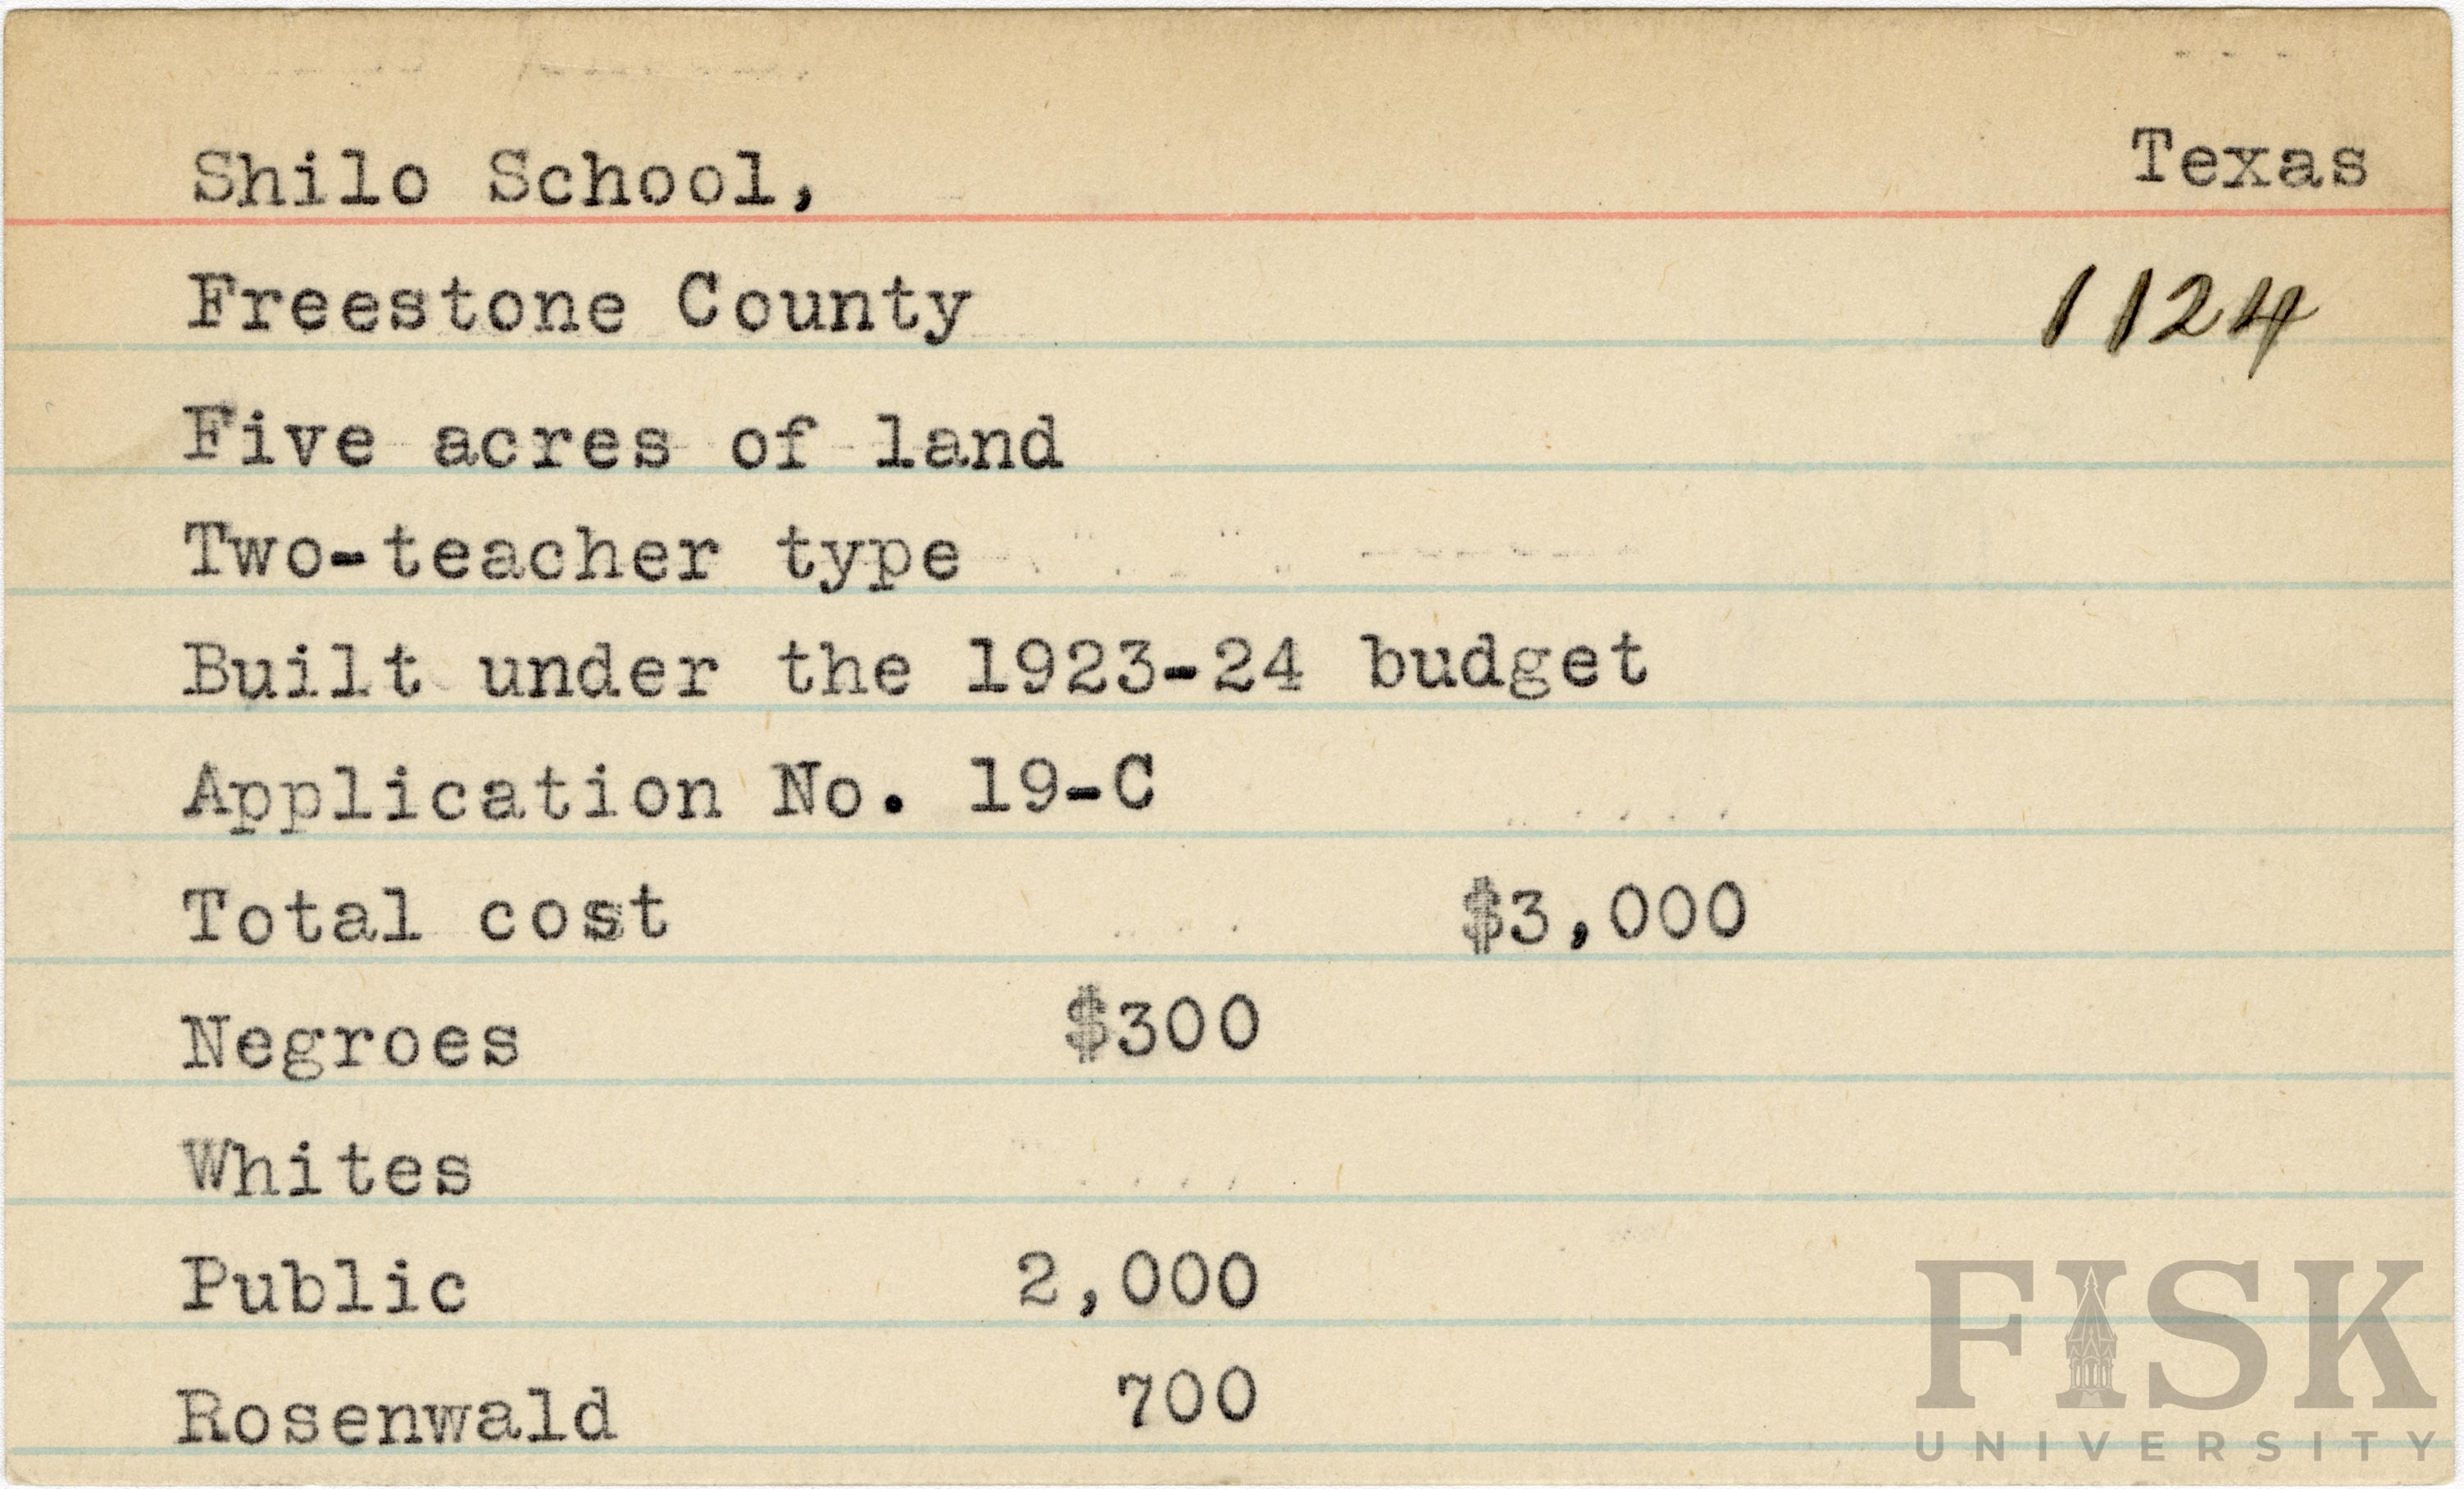 Shilo School, Texas
Freestone County 1124
Five acres of land
Two-teacher type
Built under the 1923-24 budget
Application No. 19-C
Total cost $3,000
Negroes $300
Whites
Public 2,000
Rosenwald 700
FISK
UNIVERSITY